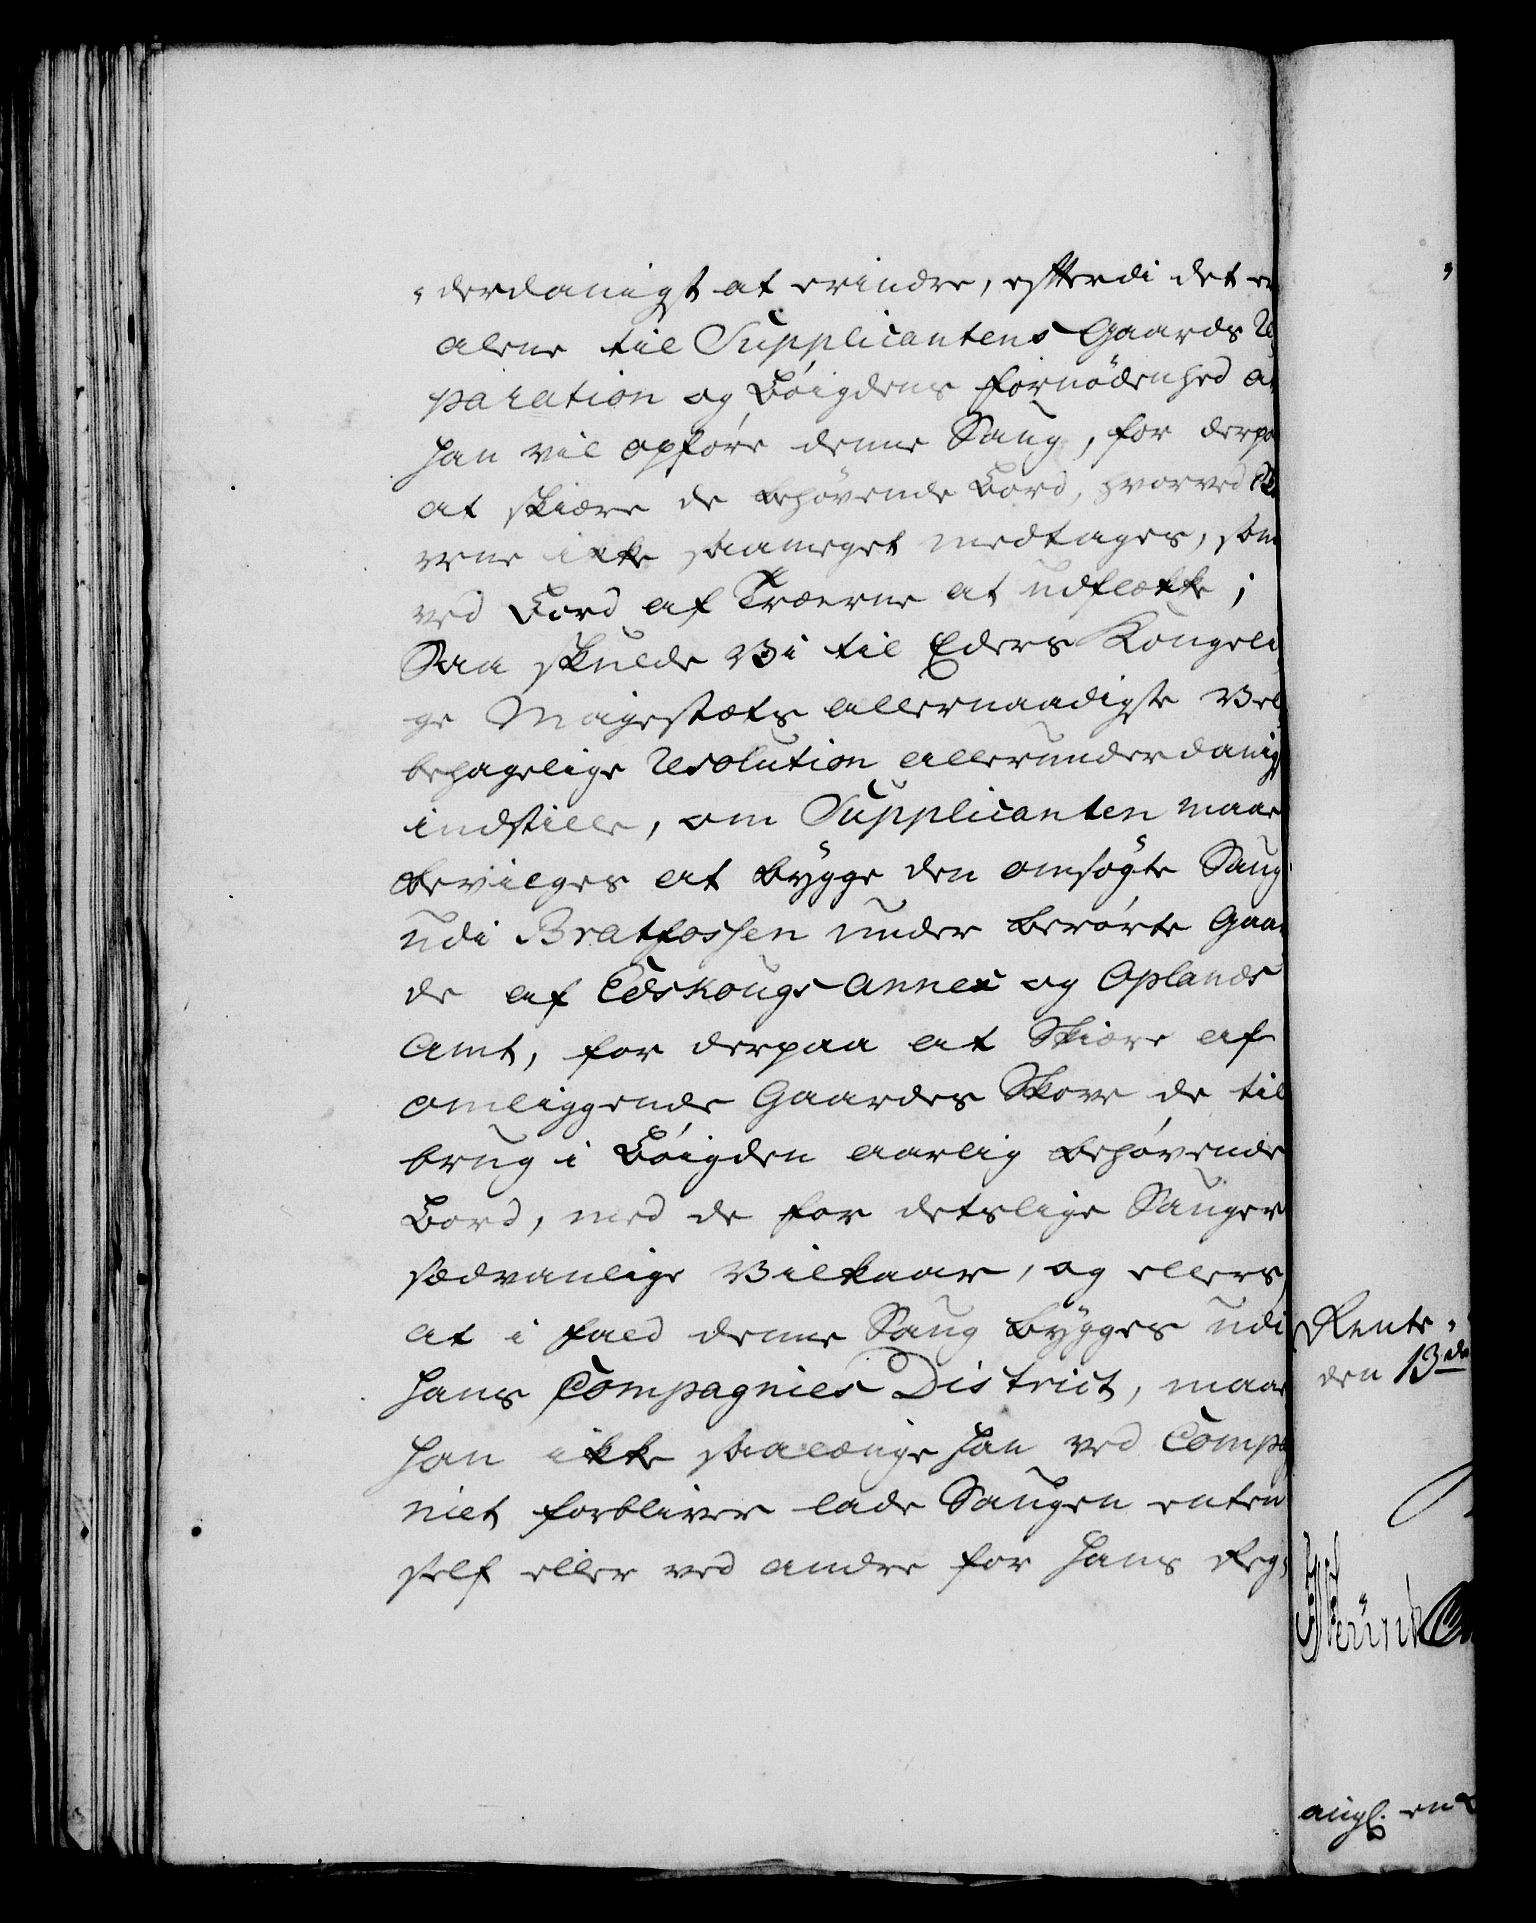 "derdanigst at erindre, efterdi det er
alene til Supplicantens Gaards Re,
paration og Bóigdens fornödenhed at
han vil opföre denne Saug, for derpaa
at skiære de behövende Bord, hvorved
vene ikke saameget medtages, som
ved Bord af Træerne at udflække;
Saa skulde Vi til Eders Kongeli,
ge Mayestæts allernaadigste Vel,
behagelige Resolution allerunderdanigst
indstille, om Supplicanten maae
bevilges at bÿgge den omsögte Saug
udi Bratfossen under berórte Gaar
de af Edskougs Annex og Oplands
Amt, for derpaa at Skiære af
omliggende Gaardes Skove de til
brug i Bóigden aarlig behóvende
Bord, med de for detslige Sauger
sædvanlige Vilkaar, og ellers,
at i fald denne Saug bÿgges udi
hans Compagnies District, maae
han ikke saalænge han ved Compag
niet forbliver lade Saugen enten
self eller ved andre for hans Reg,
Rente-
den 13de